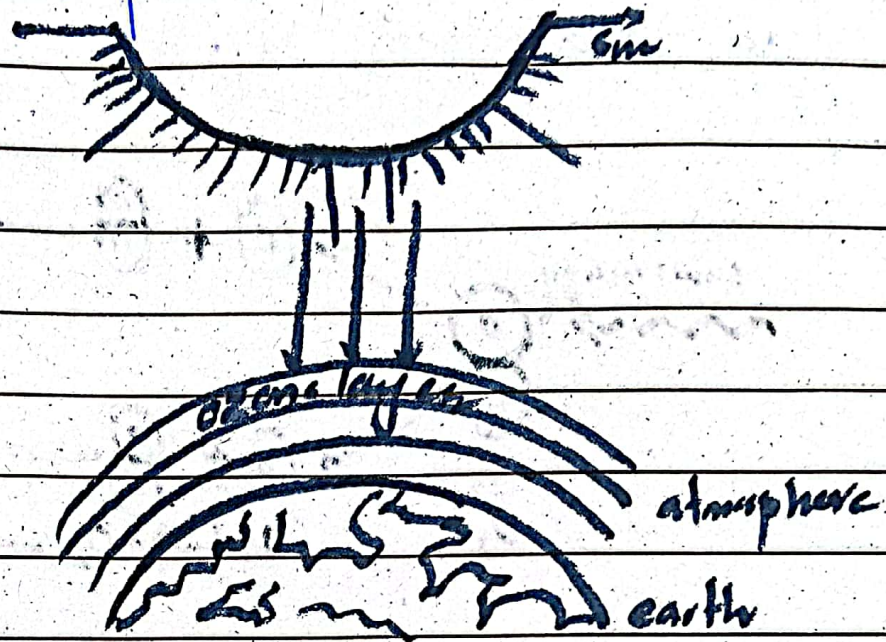 sun
ozone layer
atmosphere
earth